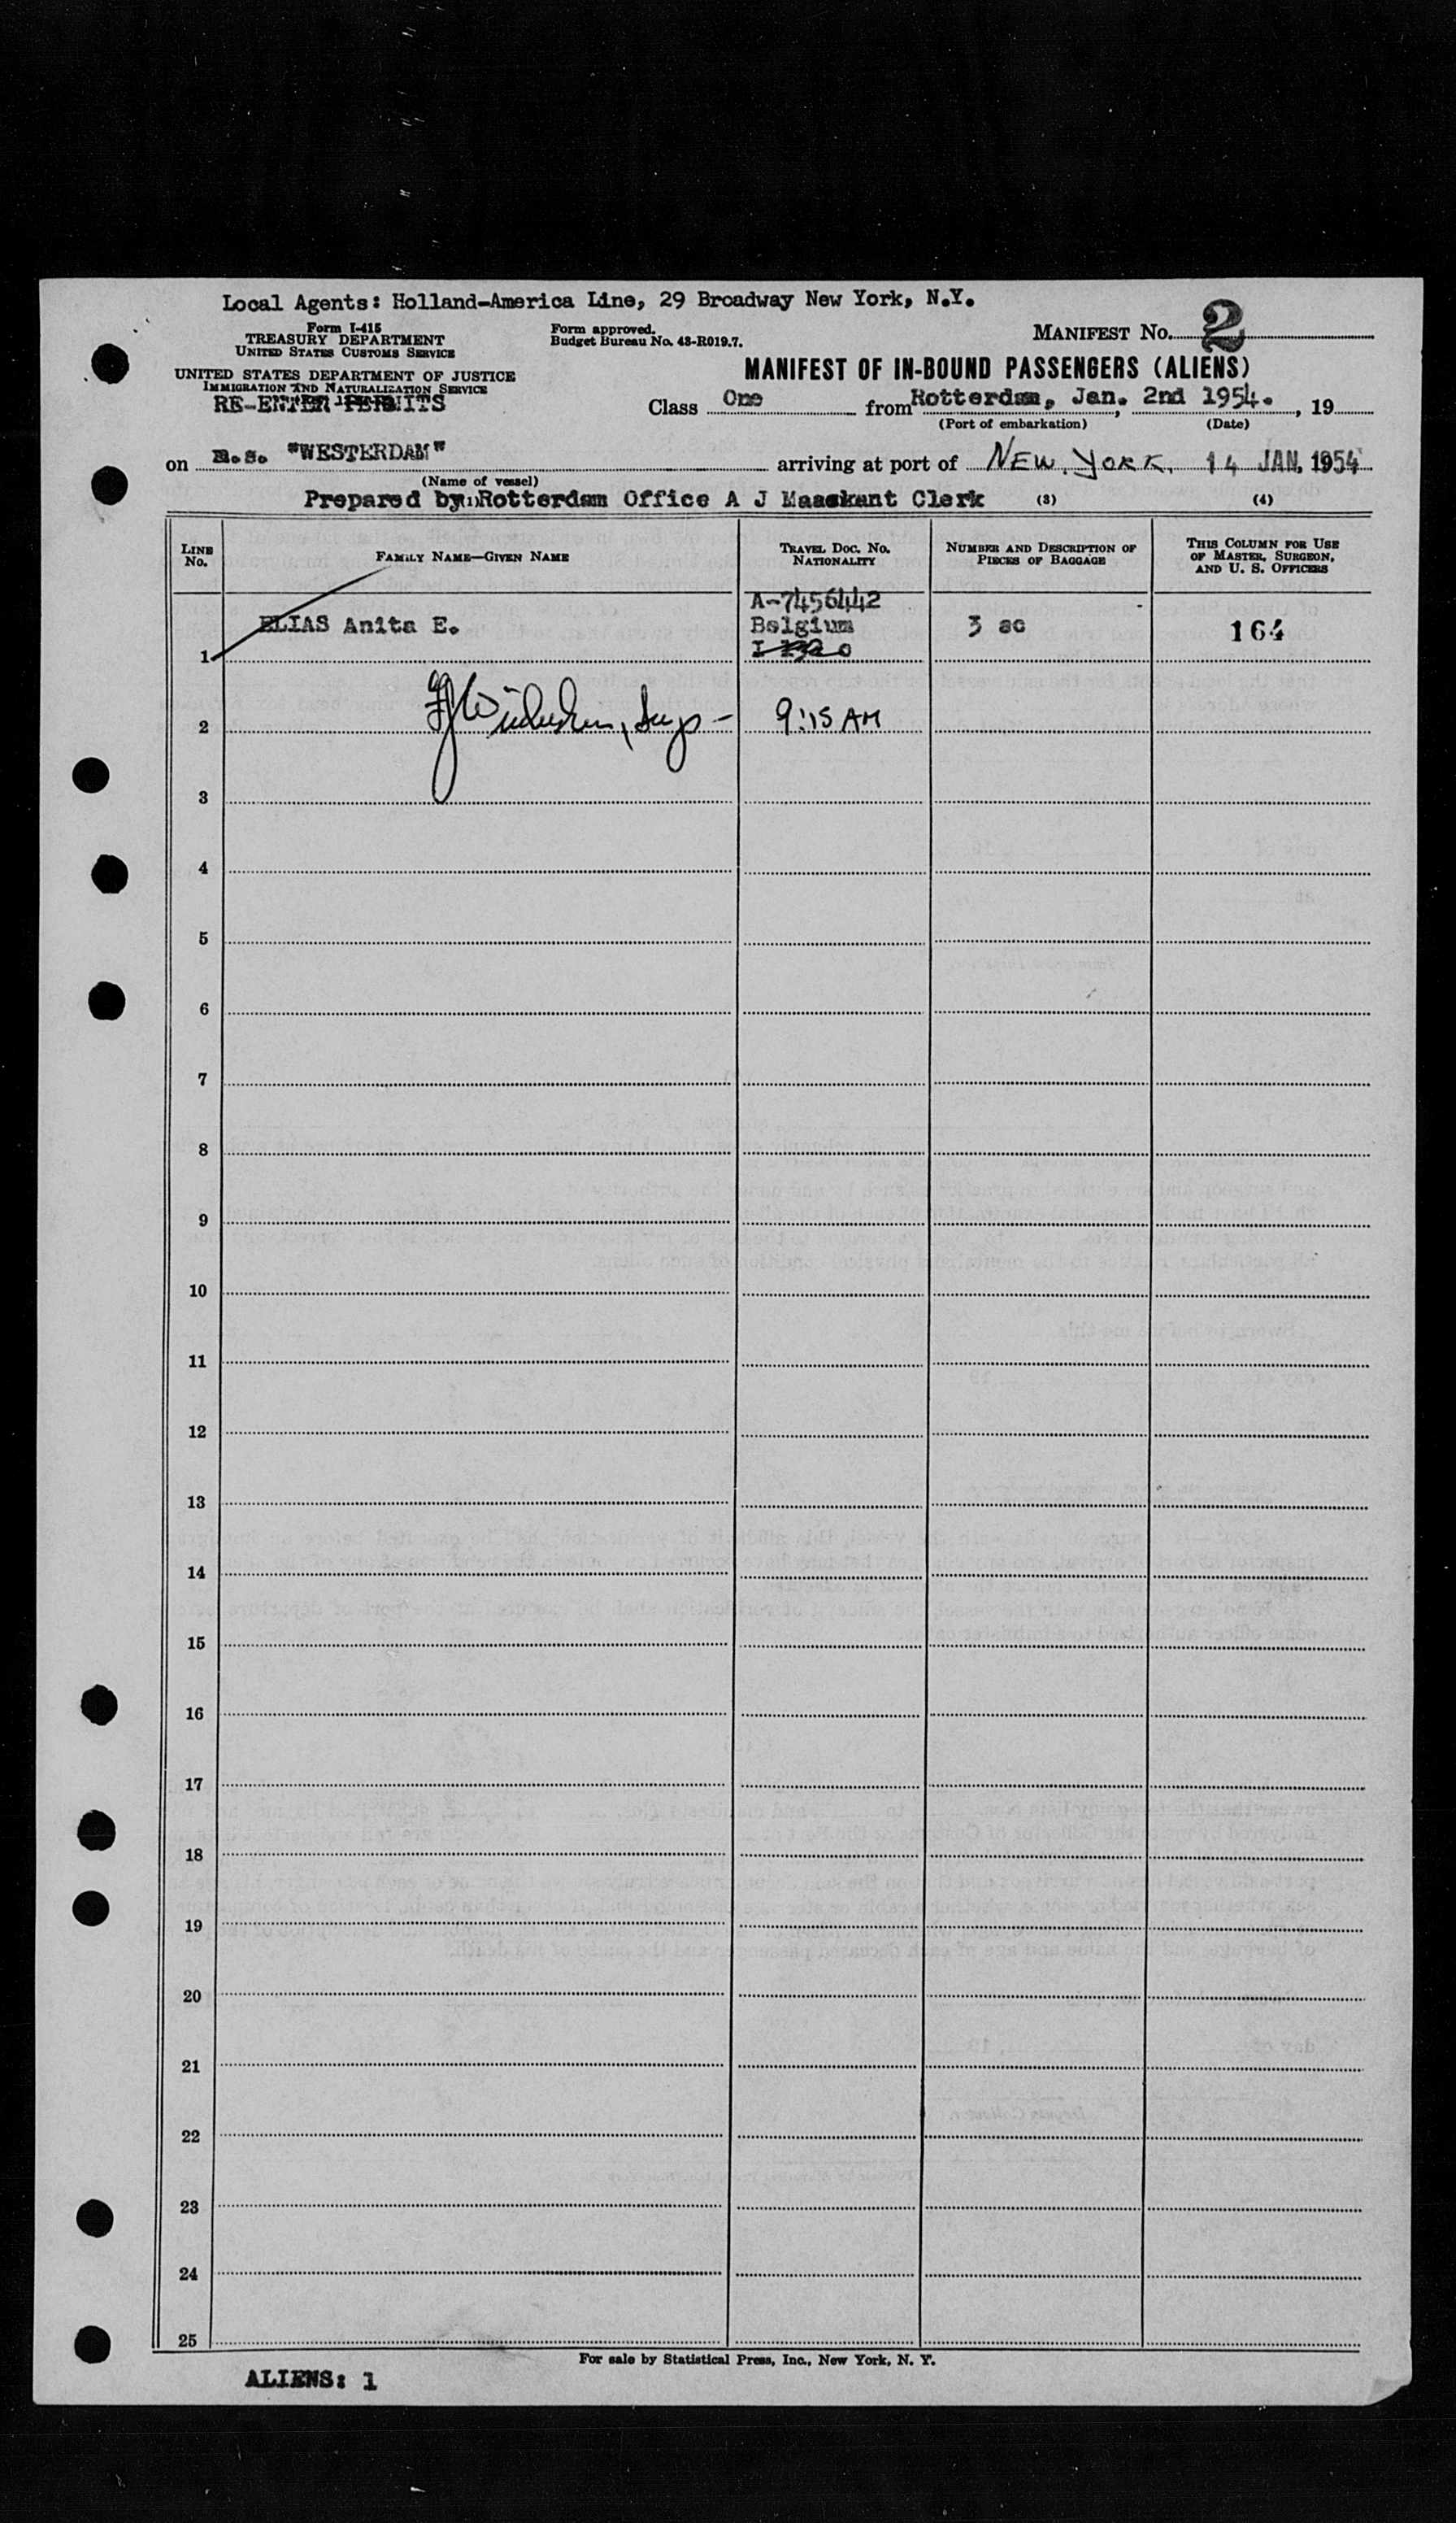 Local Agents: Holland-America Line, 29 Broadway New York, N.Y.
Form I-415
TREASURY DEPARTMENT
UNITED STATES CUSTOMS SERVICE
Form approved.
Budget Bureau No. 43-R019.7.
MANIFEST No. 2
UNITED STATES DEPARTMENT OF JUSTICE
IMMIGRATION AND NATURALIZATION SERVICE
RE-ENTER PERMITS
MANIFEST OF IN-BOUND PASSENGERS (ALIENS)
Class One from Rotterdam, Jan. 2nd 1954. , 19
(Port of embarkation) (Date)
on m.s. "WESTERDAM" arriving at port of NEW YORK. 14 JAN. 1954
(Name of vessel)
Prepared by Rotterdam Office A J Maaskant Clerk (3) (4)
LINE No. FAMILY NAME—GIVEN NAME TRAVEL DOC. No. NATIONALITY NUMBER AND DESCRIPTION OF PIECES OF BAGGAGE THIS COLUMN FOR USE OF MASTER, SURGEON, AND U. S. OFFICERS
A-7456442
ELIAS Anita E. Belgium 3 sc 164
1
2 9:15 AM
3
4
5
6
7
8
9
10
11
12
13
14
15
16
17
18
19
20
21
22
23
24
25
For sale by Statistical Press, Inc., New York, N. Y.
ALIENS: 1